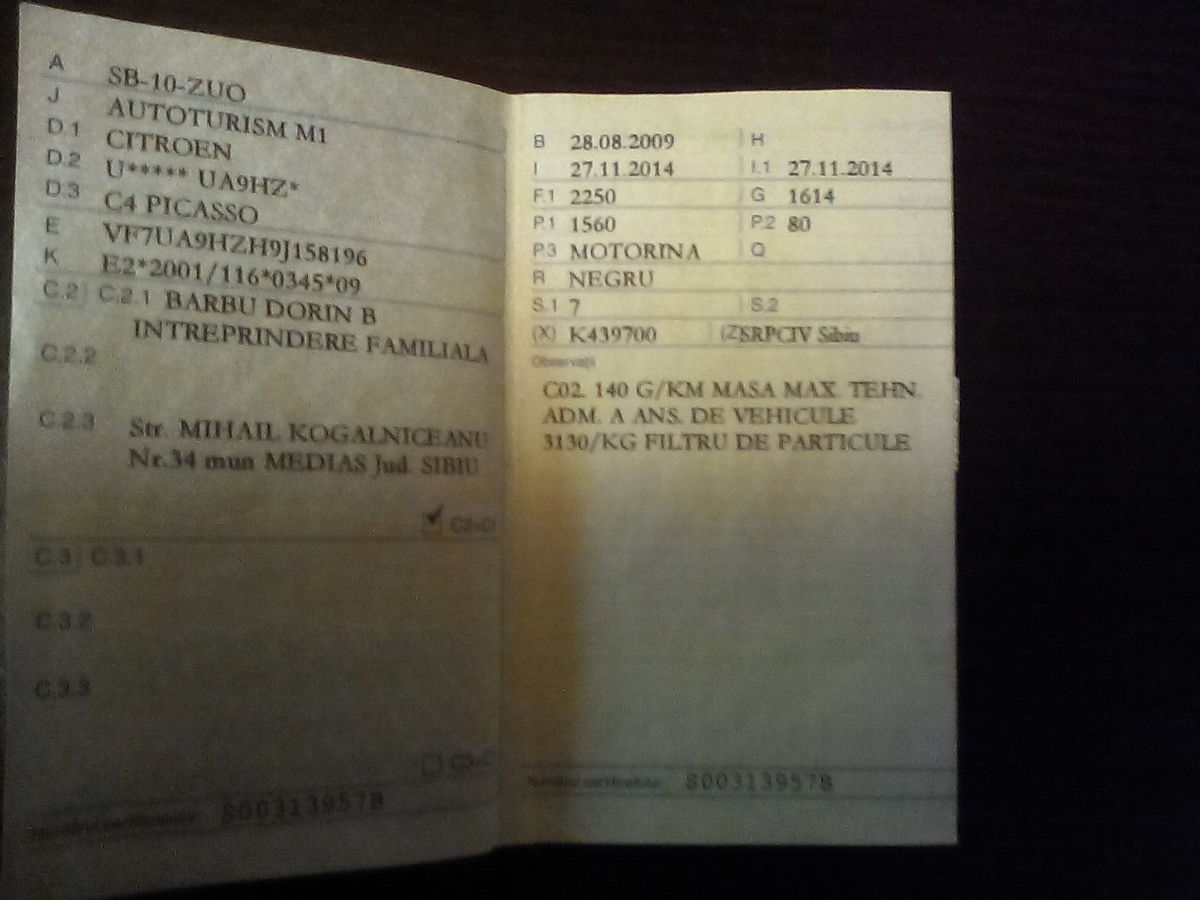 A SB-10-ZUO
J AUTOTURISM M1
D.1 CITROEN
D.2 U***** UA9HZ*
D.3 C4 PICASSO
E VF7UA9HZH9J158196
K E2*2001/116*0345*09
C.2 C.2.1 BARBU DORIN B
INTREPRINDERE FAMILIALA
C.2.2
C.2.3 Str. MIHAIL KOGALNICEANU
Nr.34 mun MEDIAS Jud. SIBIU
C.3 C.3.1
C.3.2
C.3.3
Numărul certificatului 8003139578
B 28.08.2009 H
I 27.11.2014 I.1 27.11.2014
F.1 2250 G 1614
P.1 1560 P.2 80
P.3 MOTORINA Q
R NEGRU
S.1 7 S.2
(X) K439700 (Z)SRPCIV Sibiu
Observații
C02. 140 G/KM MASA MAX. TEHN.
ADM. A ANS. DE VEHICULE
3130/KG FILTRU DE PARTICULE
Numărul certificatului 8003139578